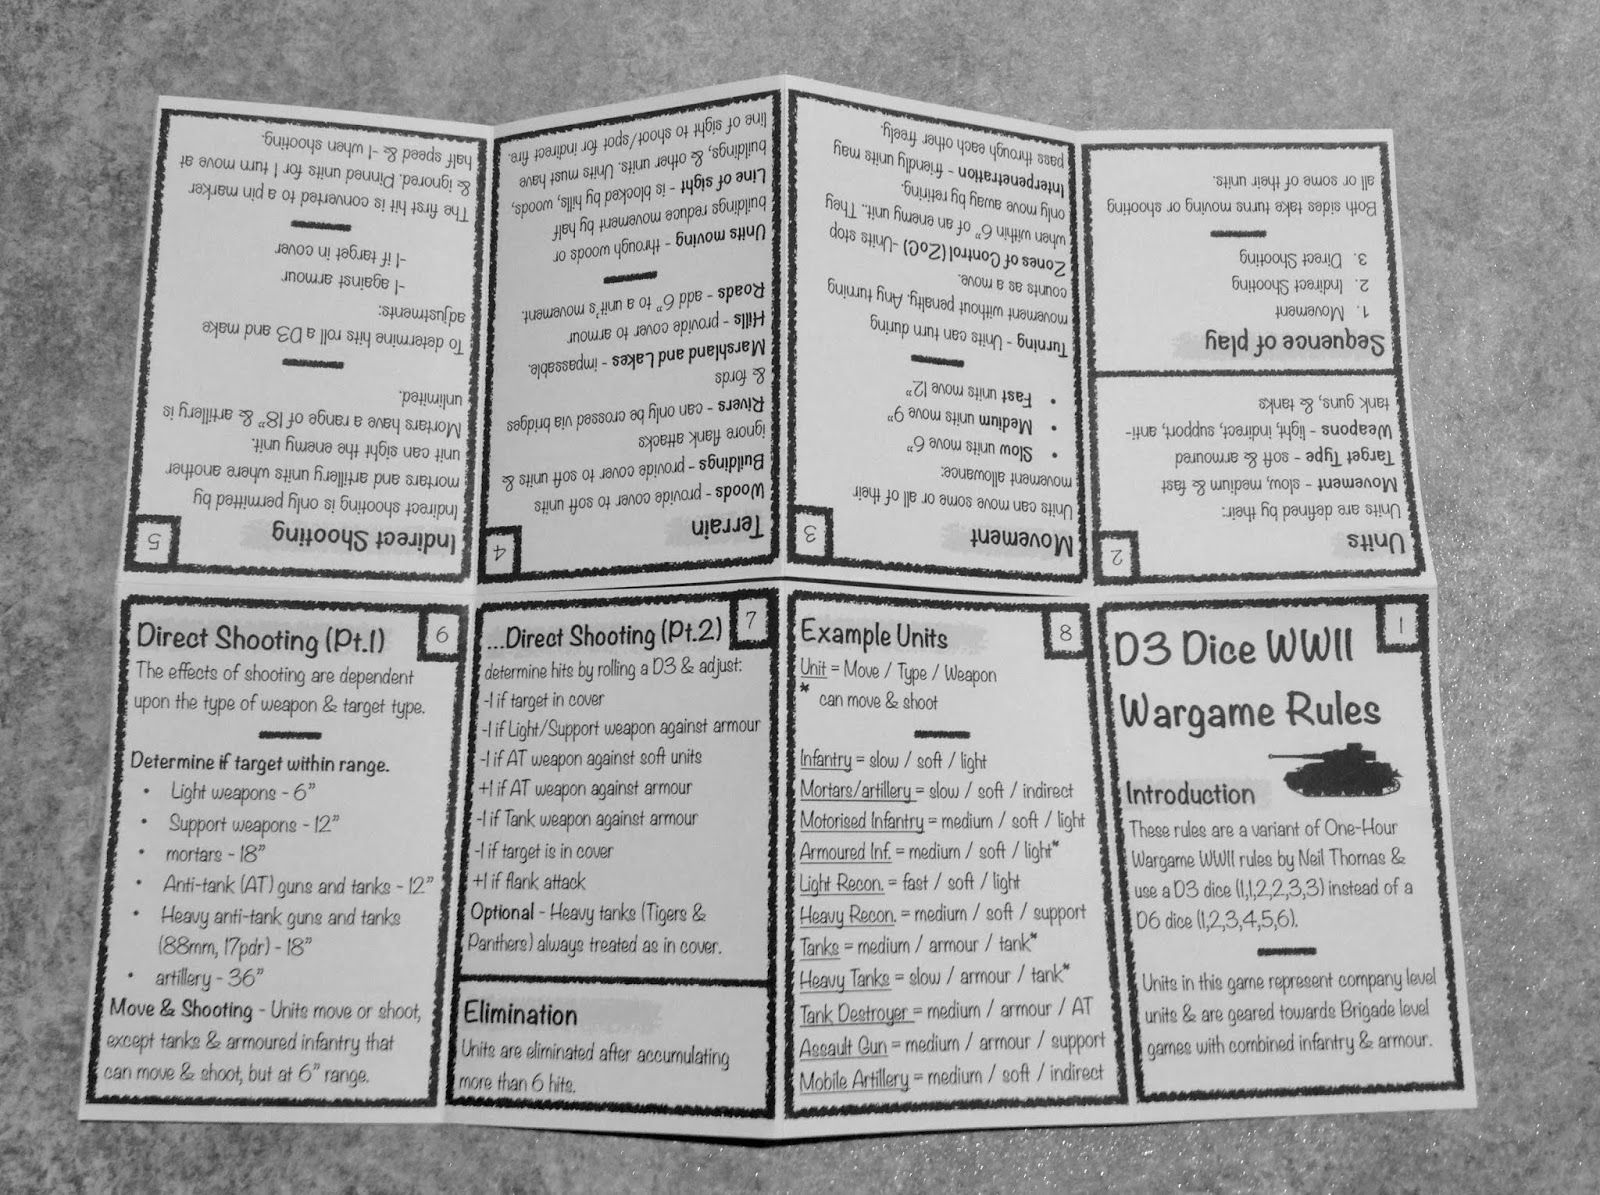 1
D3 Dice WWII
Wargame Rules
Introduction
These rules are a variant of One-Hour
Wargame WWII rules by Neil Thomas &
use a D3 dice (1,1,2,2,3,3) instead of a
D6 dice (1,2,3,4,5,6).
Units in this game represent company level
units & are geared towards Brigade level
games with combined infantry & armour.
2
Units
Units are defined by their:
Movement - slow, medium & fast
Target Type - soft & armoured
Weapons - light, indirect, support, anti-
tank guns, & tanks
Sequence of play
1. Movement
2. Indirect Shooting
3. Direct Shooting
Both sides take turns moving or shooting
all or some of their units.
3
Movement
Units can move some or all of their
movement allowance:
• Slow units move 6"
• Medium units move 9"
• Fast units move 12"
Turning - Units can turn during
movement without penalty. Any turning
counts as a move.
Zones of Control (ZoC) -Units stop
when within 6" of an enemy unit.. They
only move away by retiring.
Interpenetration - friendly units may
pass through each other freely.
4
Terrain
Woods - provide to cover to soft units
Buildings - provide cover to soft units &
ignore flank attacks
Rivers - can only be crossed via bridges
& fords
Marshland and Lakes - impassable.
Hills - provide cover to armour
Roads - add 6" to a unit's movement.
Units moving - through woods or
buildings reduce movement by half
Line of sight - is blocked by hills, woods,
buildings, & other units. Units must have
line of sight to shoot/spot for indirect fire.
5
Indirect Shooting
Indirect shooting is only permitted by
mortars and artillery units where another
unit can sight the enemy unit.
Mortars have a range of 18" & artillery is
unlimited.
To determine hits roll a D3 and make
adjustments:
-1 against armour
-1 if target in cover
The first hit is converted to a pin marker
& ignored. Pinned units for 1 turn move at
half speed & -1 when shooting.
6
Direct Shooting (Pt.1)
The effects of shooting are dependent
upon the type of weapon & target type.
Determine if target within range.
• Light weapons - 6"
• Support weapons - 12"
• mortars - 18"
• Anti-tank (AT) guns and tanks - 12"
• Heavy anti-tank guns and tanks
(88mm, 17pdr) - 18"
• artillery - 36"
Move & Shooting - Units move or shoot,
except tanks & armoured infantry that
can move & shoot, but at 6" range.
7
...Direct Shooting (Pt.2)
determine hits by rolling a D3 & adjust:
-1 if target in cover
-1 if Light/Support weapon against armour
-1 if AT weapon against soft units
+1 if AT weapon against armour
-1 if Tank weapon against armour
-1 if target is in cover
+1 if flank attack
Optional - Heavy tanks (Tigers &
Panthers) always treated as in cover.
Elimination
Units are eliminated after accumulating
more than 6 hits.
8
Example Units
Unit = Move / Type / Weapon
* can move & shoot
Infantry = slow / soft / light
Mortars/artillery = slow / soft / indirect
Motorised Infantry = medium / soft / light
Armoured Inf. = medium / soft / light*
Light Recon. = fast / soft / light
Heavy Recon. = medium / soft / support
Tanks = medium / armour / tank*
Heavy Tanks = slow / armour / tank*
Tank Destroyer = medium / armour / AT
Assault Gun = medium / armour / support
Mobile Artillery = medium / soft / indirect